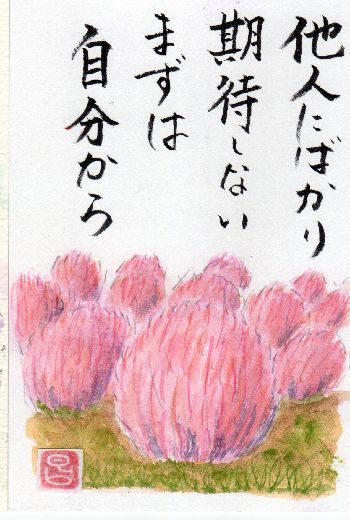 他人にばかり
期待しない
まずは
自分から